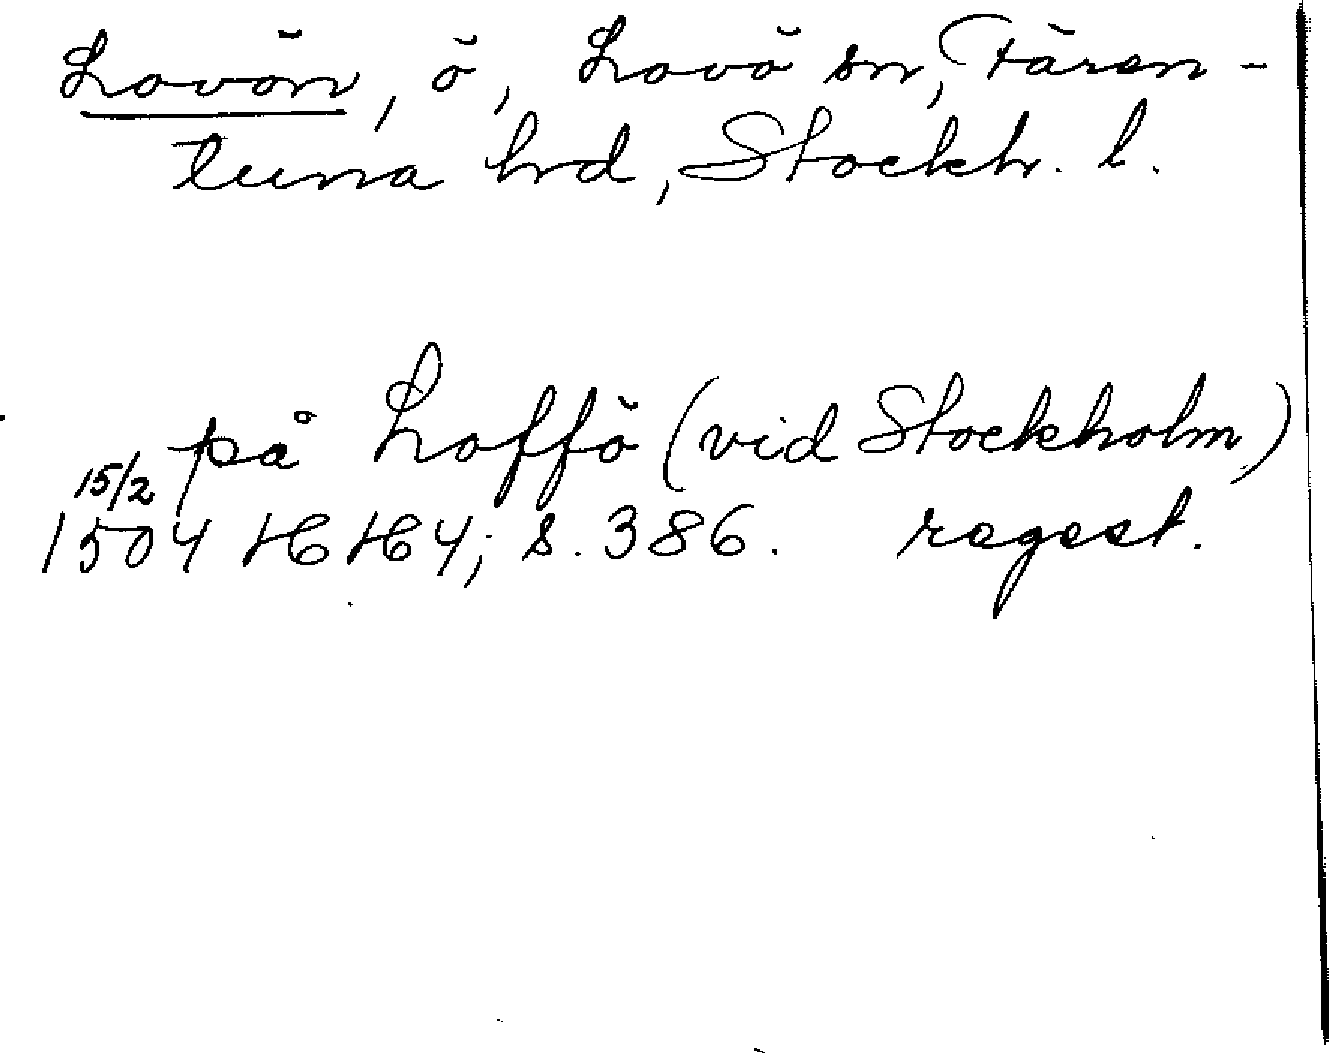 Lovön, ö, Lovö sn, Fären-
tuna hrd, Stockh. l.
på Loffö (vid Stockholm)
15/2
1504 HH 4; s. 386. regest.